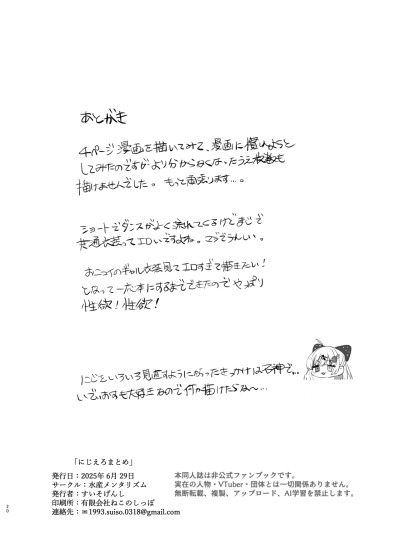 あとがき
4ページ漫画を描いてみる、漫画に慣れようと
してみたのですがより分からなくなったうえ
描けませんでした。もっと頑張ります…。
ショートでダンスがよく流れてくるけどまじで
共通衣装ってエロいですよね。マジでうれしい。
おニューのギャル衣装見てエロすぎて描きたい!
となって一応本にするまでできたのでやっぱり
性欲!性欲!
にじをいろいろ見直すようになったきっかけは
いで 大好きなので何か描けたらな〜…
「にじえろまとめ」
発行日:2025年6月29日
サークル:水産メンタリズム
発行者:すいそげんし
印刷所:有限会社ねこのしっぽ
連絡先:✉1993.suiso.0318@gmail.com
本同人誌は非公式ファンブックです。
実在の人物・VTuber・団体とは一切関係ありません。
無断転載、複製、アップロード、AI学習を禁止します。
20